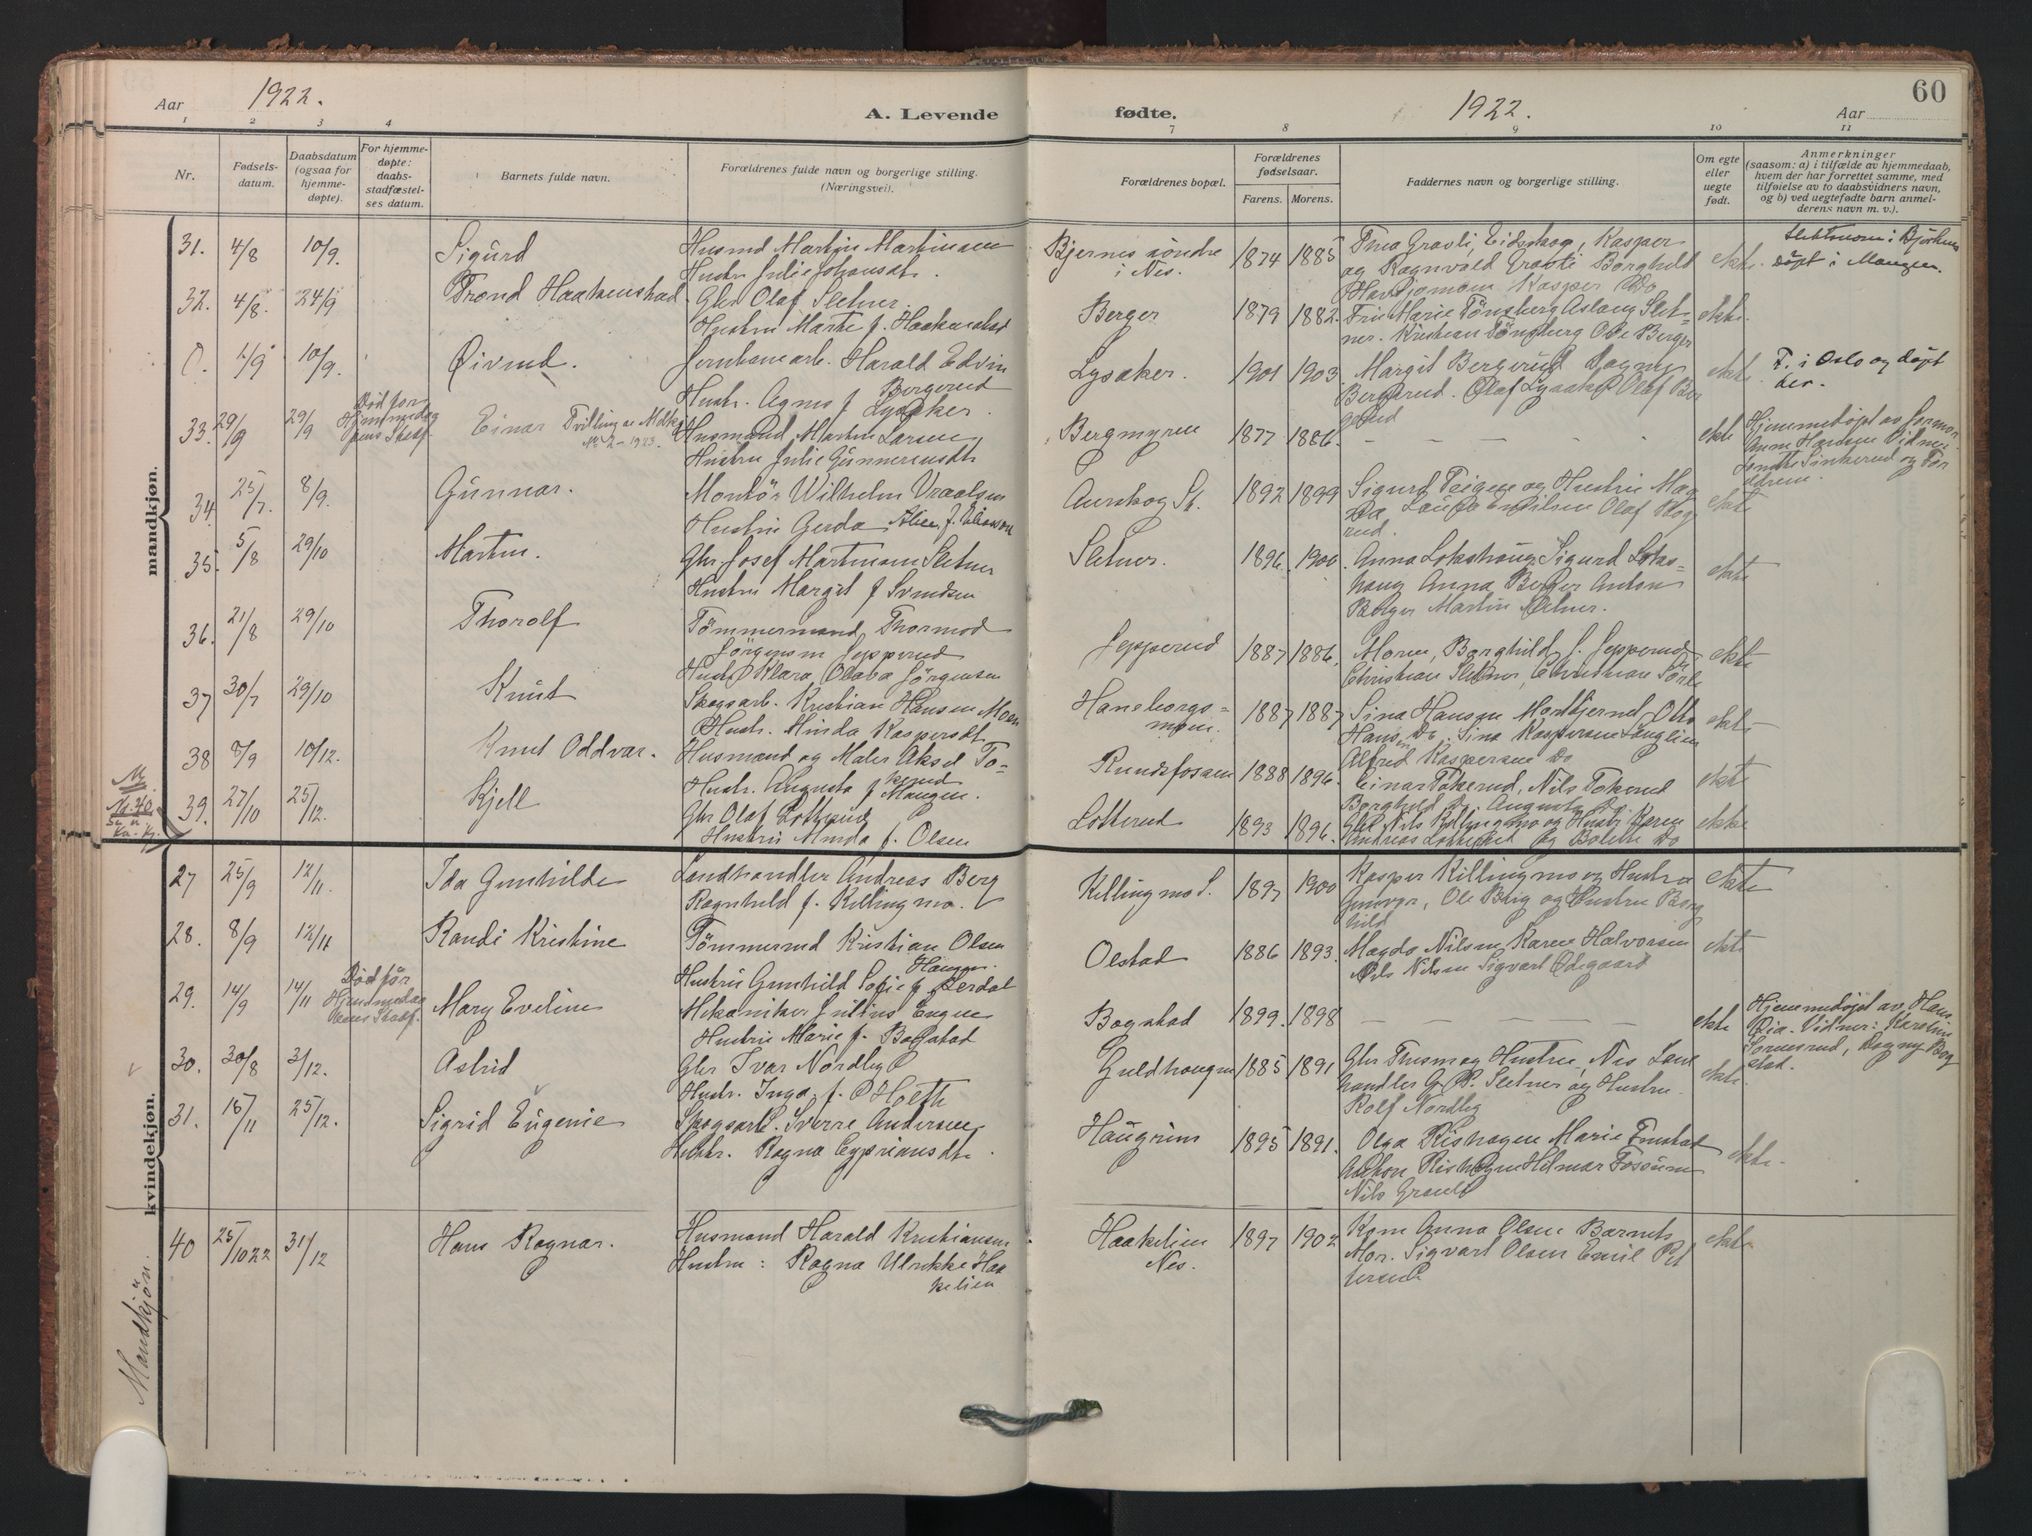 Aar 1922. A. Levende fødte. 1922. Aar 60
1 2 3 4 7 8 9 10 11
Nr.
Fødsels-
datum.
Daabsdatum
(ogsaa for
hjemme-
døpte).
For hjemme-
døpte:
daabs-
stadfæstel-
ses datum.
Barnets fulde navn.
Forældrenes fulde navn og borgerlige stilling.
(Næringsvei).
Forældrenes bopæl.
Forældrenes
fødselsaar.
Farens. Morens.
Faddernes navn og borgerlige stilling.
Om egte
eller
uegte
født.
Anmerkninger
(saasom: a) i tilfælde av hjemmedaab,
hvem der har forrettet samme, med
tilføielse av to daabsvidners navn,
og b) ved uegtefødte barn anmel-
derens navn m. v.).
mandkjøn.
31. 4/8 10/9. Sigurd
Husmd Martin Martinsen
Hustr. Julie Johansdt.
Bjernes söndre
i Nes.
1874 1885
Thea Gravli, Eidskog, Kasper
og Ragnvald Gravli Borghild
Kasper Do
ekte.
døpt i Mangen.
32. 4/8. 24/9 Trond Haakenstad
Gbr Olaf Sletner.
Hustru Marte f. Haakenstad
Berger
1879 1882.
Fru Marie Tönsberg Aslaug Slet-
ner. Kristian Tönsberg Ole Berger
ekte.
0. 1/9 10/9. Øivind.
Jernbanearb. Harald Edvin
Bergerud
Hustr. Agnes f Lysaker.
Lysaker.
1901 1903.
Margit Bergerud Dagny
Bergerud. Olaf Lysaker Olaf Ber
gerud
ekte.
F. i Oslo og døpt
der.
33. 29/9 29/9
Död för
Hjemmedaa
bens Stadf.
Einar Tvilling av
No 2 - 1923.
Husmand Martin Larsen
Hustru Julie Gunnerusdt
Bergmyren
1877 1886.
— — —
ekte
Hjemmedøpt av formor
Anne Hansen Vidner
Sinkerud og For
ældrene.
34. 25/7. 8/9. Gunnar.
Montör Wilhelm Vraalsen
Hustru Gerda Alice f. Eliasson
Aurskog St.
1892 1899
Sigurd Teigen og Hustru Mag
da Laura Emilsen Olaf Skog
rud.
ekte
35. 5/8 29/10 Martin.
Gbr Josef Martinsen Sletner
Hustru Margit f Svendsen
Sletner.
1896. 1900.
Anna Lokshaug Sigurd Loks-
haug Anna Berger Anton
Berger Martin Sletner.
ekte
36. 21/8 29/10 Thorolf
Tömmermand Thormod
Jörgensen Jepperud
Hustr. Klara Olaba Jörgensen
Jepperud
1887 1886.
Moren, Borghild J. Jepperud,
Christian Sletner, Christian Sörli
ekte
37 30/7 29/10 Knut
Skogsarb. Kristian Hansen Moen
Hustr. Minda Kaspersdt.
Haneborgs-
moen.
1887 1887
Sina Hansen Mordkjernet Otto
Hansen Do. Sina Kaspersen Langlien
Alfred Kaspersen Do
ekte
38 8/9 10/12. Knut Oddvar.
Husmand og Maler Aksel To-
kerud
Hustr. Augusta f Mangen.
Rundsfossen
1888 1896.
Einar Tokerud, Nils Tokerud
Borghild Do. Augusta Do.
ekte
39. 27/10 25/12. Kjell
Gbr Olaf Lotterud
Hustru Minda f. Olsen
Lotterud
1893 1896.
Gbr Nils Killingmo og Hustr. Karen
Andreas Lotterud og Bolette Do
ekte
M.
No. 40
kvindekjøn.
27 25/9 12/11. Ida Gunhilde
Landhandler Andreas Berg
Ragnhild f. Killingmo.
Killingmo S.
1897 1900
Kasper Killingmo og Hustru
Gunvor, Ole Berg og Hustru Borg
hild
ekte
28. 8/9 12/11 Randi Kristine
Tömmermd Kristian Olsen
Haugen.
Hustru Gunhild Sofie f. Lerdal
Olstad
1886 1893.
Magda Nilsen Karen Halvorsen
Nils Nilsen Sigvart Ödegaard
ekte
29. 14/9 14/11
Död för
Hjemmedaa
bens Stadf.
Mary Eveline
Mekaniker Julius Engen
Hustru Marie f. Bogstad
Bogstad
1899. 1898
— — —
ekte
Hjemmedøpt av Hans
Vidner: Karoline
Dagny Bog
stad.
30. 30/8 3/12. Astrid
Gbr Ivar Nordby
Hustr. Inga f. Hoeth
Guldhaugen
1885 1891
Gbr Thismo og Hustru Nes Land
handler G. P. Sletner og Hustru
Rolf Nordby
ekte.
31. 16/11 25/12. Sigrid Eugenie
Skogsarb. Sverre Andersen
Hustr. Ragna Cypriansdt.
Haugrim
1895 1891.
Olga Rishagen Marie Fonstad
Anton Rishagen Hilmar Fossum
Nils Gravli
ekte.
Mandkjön.
40 25/10 22 31/12 Hans Ragnar.
Husmand Harald Kristiansen
Hustru: Ragna Ulrikke Haa
kelien
Haakelien
Nes.
1897 1902
Kone Anna Olsen Barnets
Mor. Sigvart Olsen Emil Pet
tersen
ekte